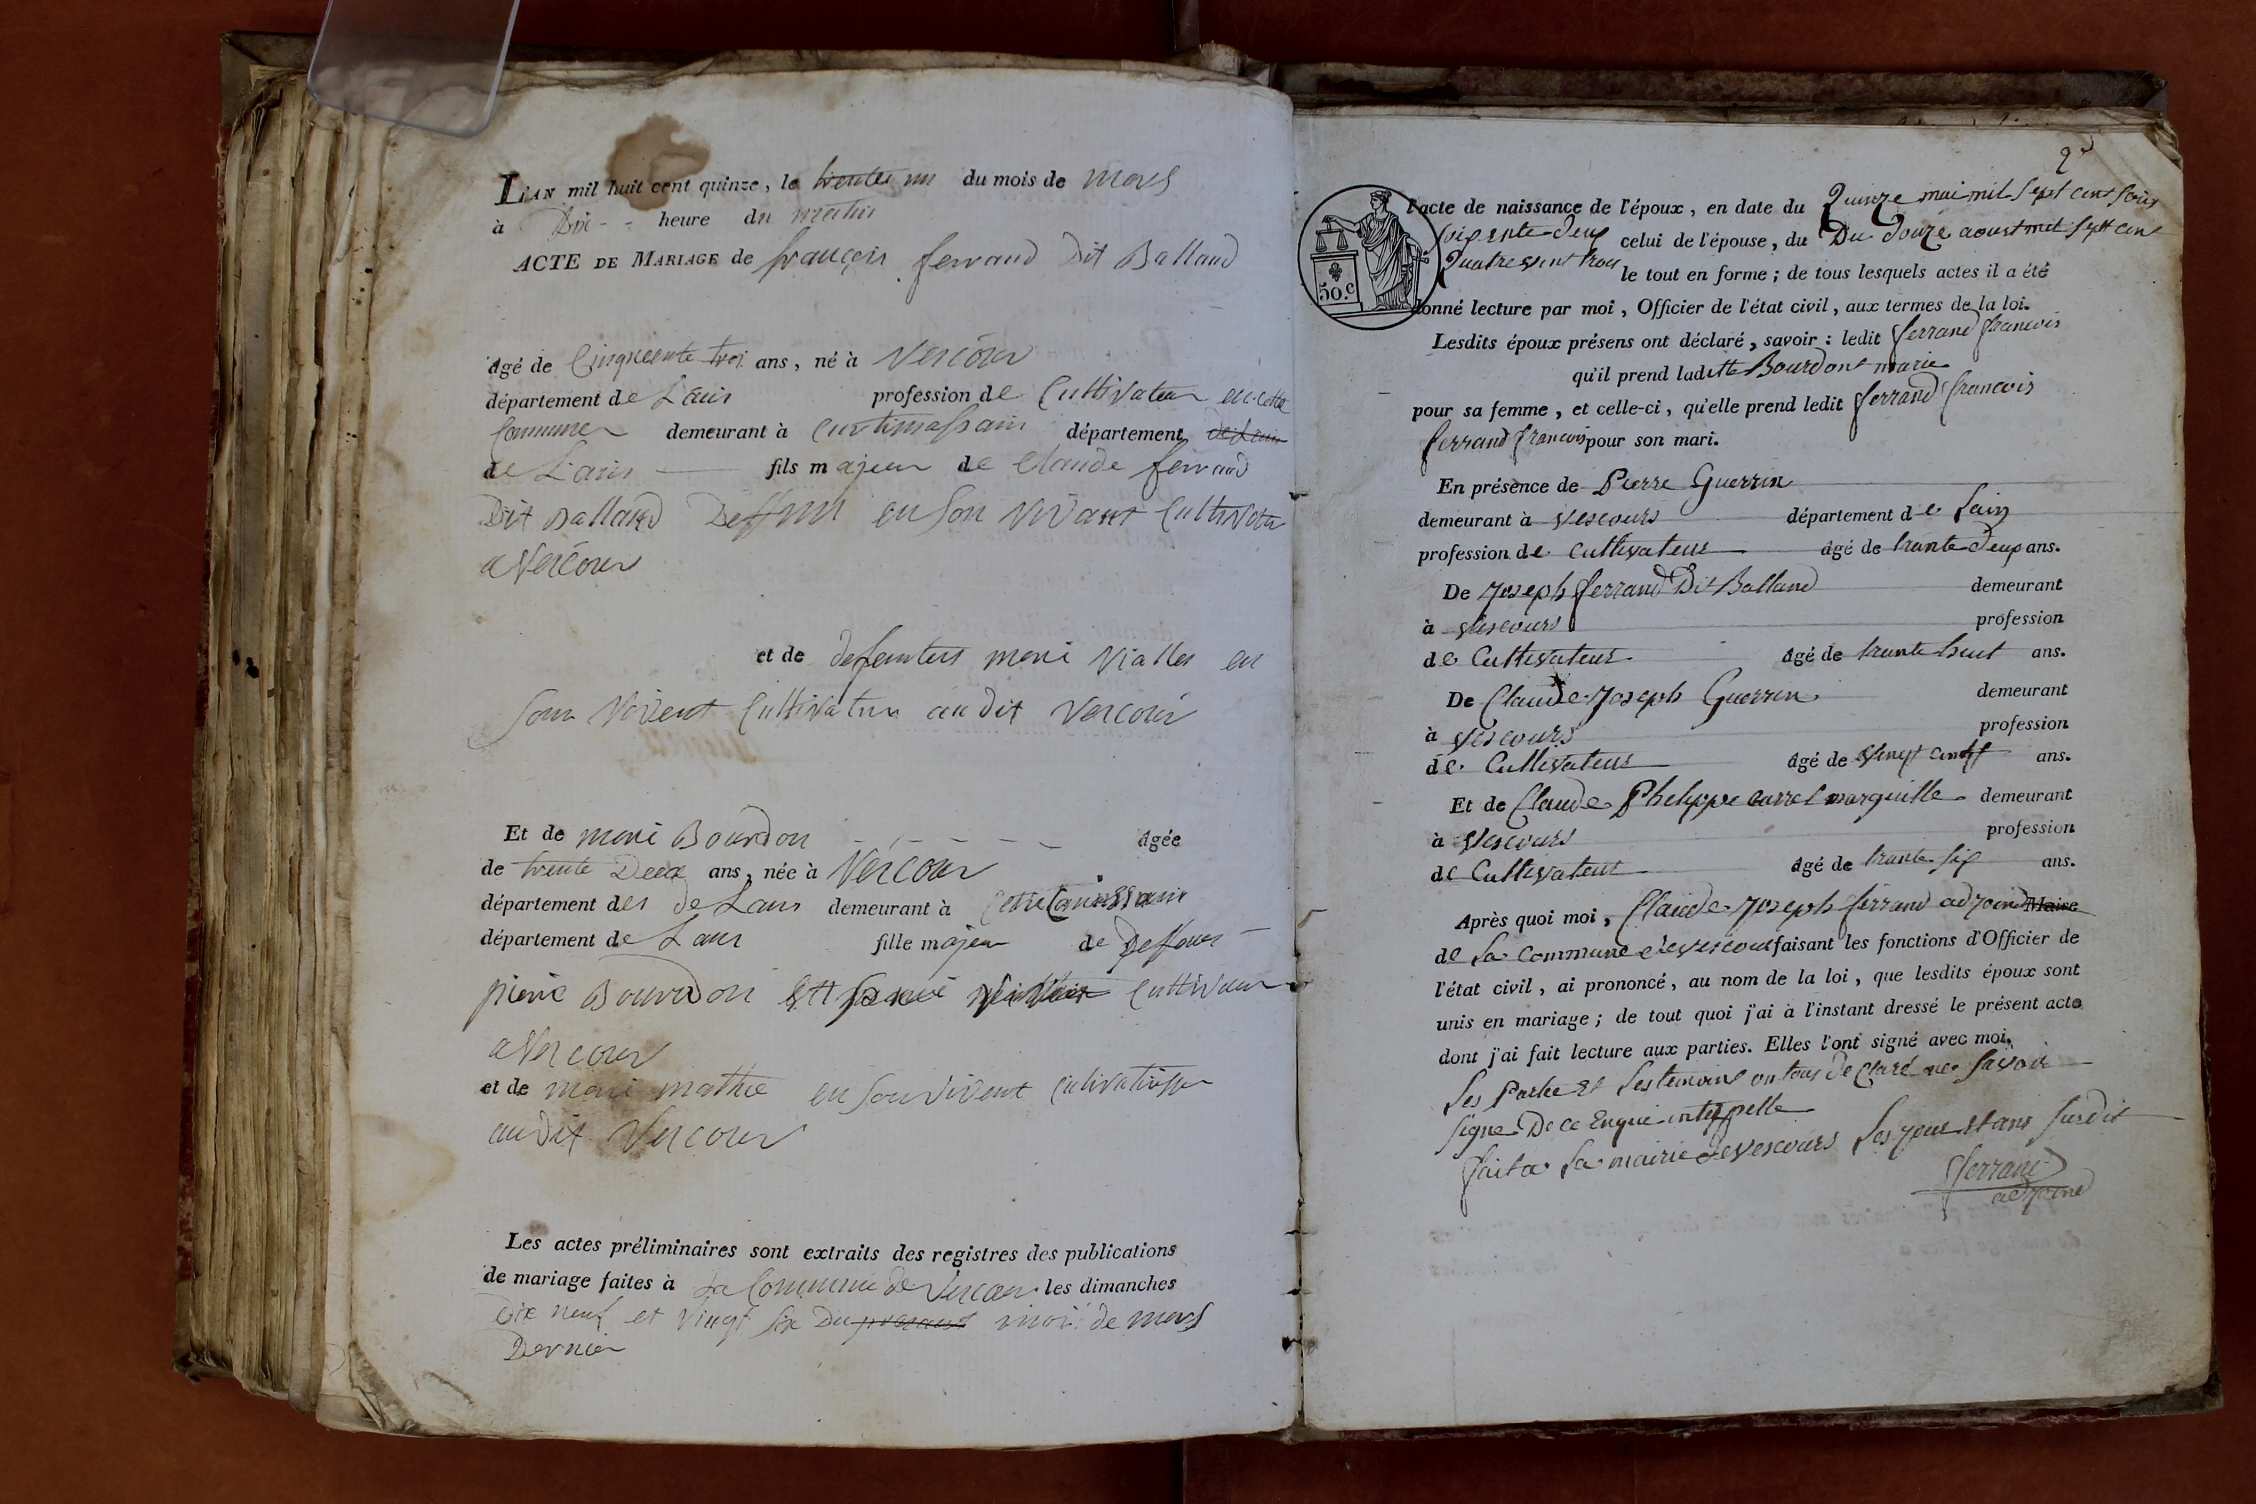 L'AN mil huit cent quinze, le trente un du mois de mars
à Dix heure du matin
ACTE DE MARIAGE de françois ferrand Dit Balland
âgé de Cinqueente troi ans, né à Vercour
département de Lain profession de Cultivateur en cette
Commune demeurant à département
de Lain fils majeur de Claude ferrand
Dit Balland Deffun en son vivant Cultivateur
a Vercour
et de mari Vialler en
son vivent Cultivature audit Vercour
Et de mari Bourdon âgée
de trente Deux ans, née à Vercour
département des de Lain demeurant à
département de Lain fille majeur de
pierre Bourdon Cultivateur
a Vercour
et de mari mathie en son vivent Cultivatrisse
audit Vercour
Les actes préliminaires sont extraits des registres des publications
de mariage faites à La Commune de Vercour les dimanches
Dix neuf et Vingt six Du presant moi de mars
Dernier
2e
50.c
l'acte de naissance de l'époux, en date du Quinze mai mil sept cent soix
soixente Deux celui de l'épouse, du Du Douze aoust mil sept cent
Quatre vint trois le tout en forme; de tous lesquels actes il a été
donné lecture par moi, Officier de l'état civil, aux termes de la loi.
Lesdits époux présens ont déclaré, savoir: ledit ferrand francois
qu'il prend laditte Bourdont marie
pour sa femme, et celle-ci, qu'elle prend ledit ferrand francois
ferrand francois pour son mari.
En présence de Pierre Guerrin
demeurant à vescours département de Lain
profession de cultivateur âgé de trante Deux ans.
De Joseph ferrand Dit Balland demeurant
à vescours profession
de Cultivateur âgé de trante huit ans.
De Claude Joseph Guerrin demeurant
à vescours profession
de Cultivateur âgé de vingt cinq ans.
Et de Claude Phelippe carrel marguille demeurant
à vescours profession
de Cultivateur âgé de trante six ans.
Après quoi moi, Claude Joseph ferrand adjoind Maire
de La Commune de vescour faisant les fonctions d'Officier de
l'état civil, ai prononcé, au nom de la loi, que lesdits époux sont
unis en mariage; de tout quoi j'ai à l'instant dressé le présent acte
dont j'ai fait lecture aux parties. Elles l'ont signé avec moi,
Les Partie et Les temoins on tous De Claré ne savoir
signe De ce Enquie interpelle
fait a La mairie de vescours Les jour et ans susdit
ferrand
adjoind